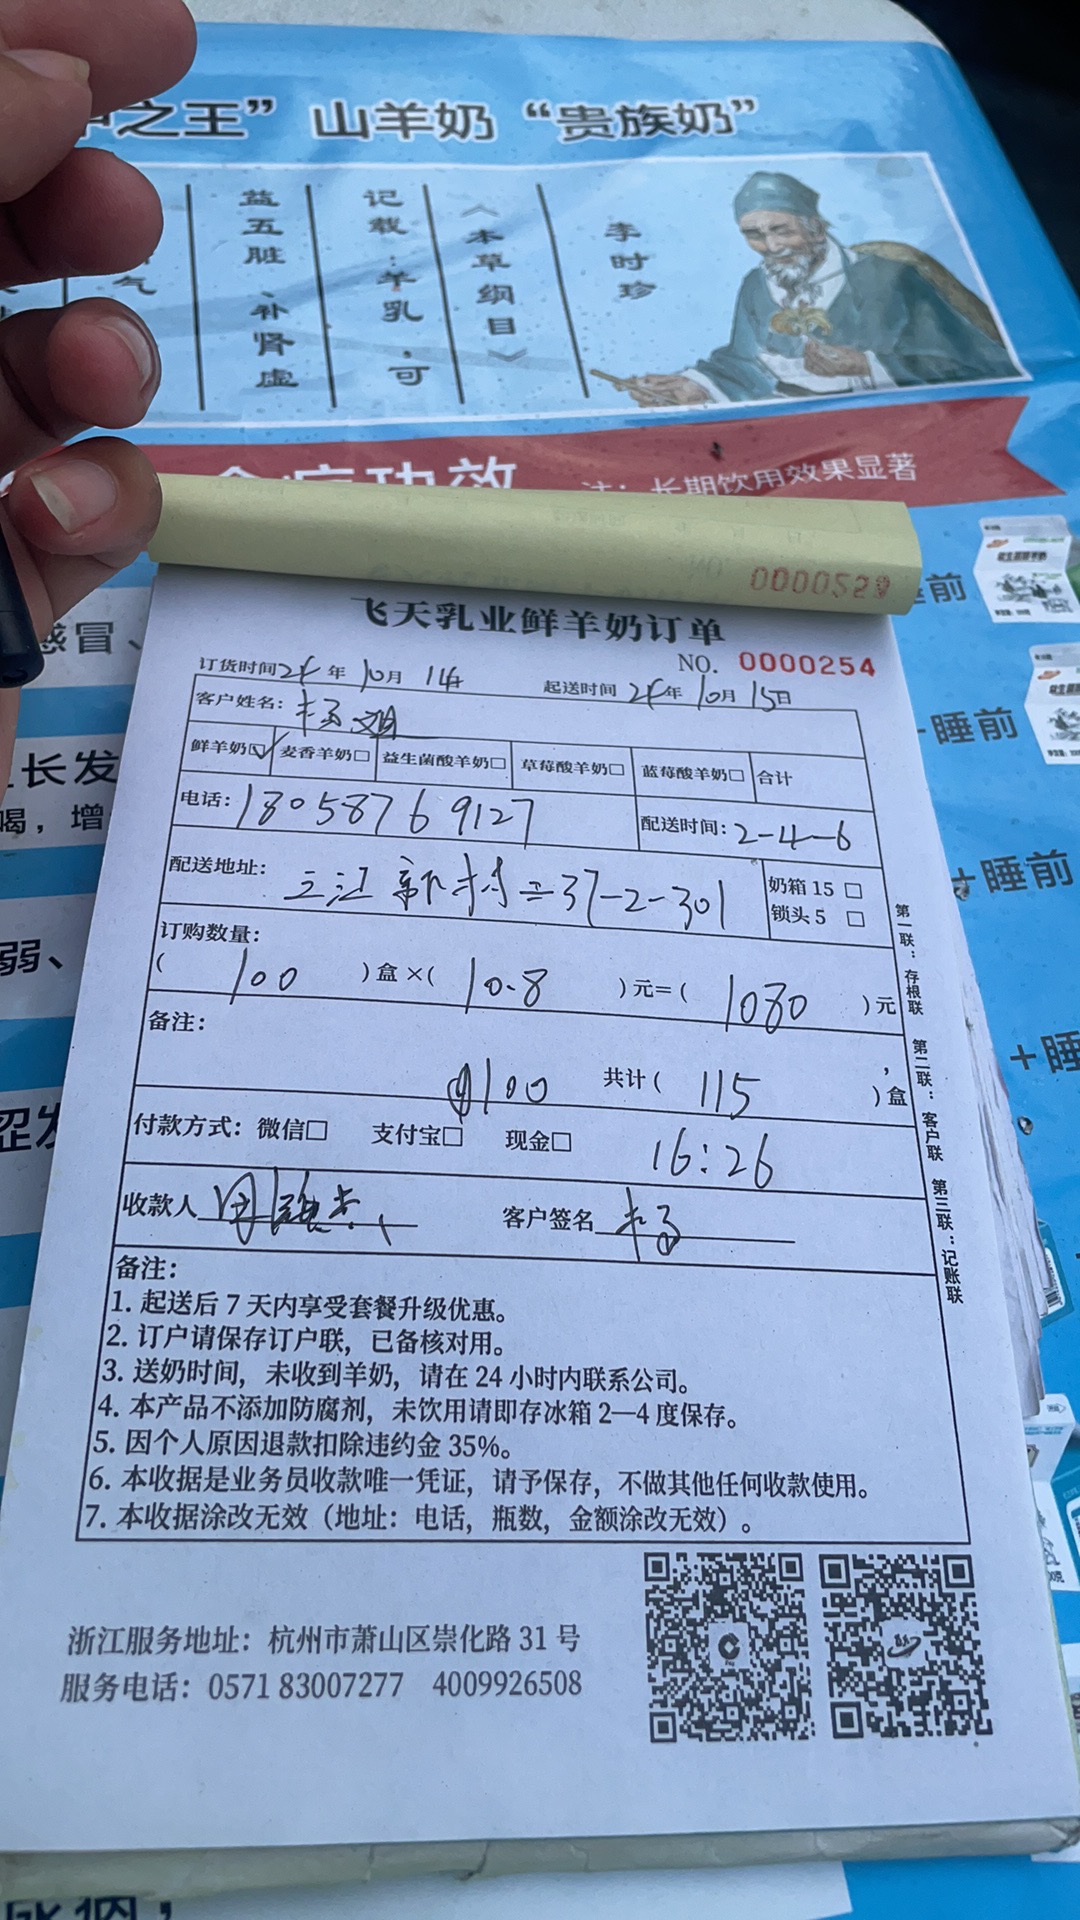 之王”山羊奶“贵族奶”
李时珍
《本草纲目》
记载：羊乳，可
益五脏、补肾虚
气
功效 注：长期饮用效果显著
0000529
睡前
感冒、
飞天乳业鲜羊奶订单
NO. 0000254
订货时间24年10月14 起送时间24年10月15日
客户姓名：杨姐
鲜羊奶☑ 麦香羊奶□ 益生菌酸羊奶□ 草莓酸羊奶□ 蓝莓酸羊奶□ 合计
睡前
长发
电话：18058769127 配送时间：2-4-6
喝，增
配送地址：三江新村二37-2-301 奶箱 15 □
锁头 5 □
+睡前
弱、
订购数量：
(100)盒×(10.8)元=(1080)元
备注：
100 共计(115)盒
+睡
付款方式：微信□ 支付宝□ 现金□ 16:26
收款人 客户签名 杨
第一联：存根联
第二联：客户联
第三联：记账联
备注：
1. 起送后 7 天内享受套餐升级优惠。
2. 订户请保存订户联，已备核对用。
3. 送奶时间，未收到羊奶，请在 24 小时内联系公司。
4. 本产品不添加防腐剂，未饮用请即存冰箱 2—4 度保存。
5. 因个人原因退款扣除违约金 35%。
6. 本收据是业务员收款唯一凭证，请予保存，不做其他任何收款使用。
7. 本收据涂改无效（地址：电话，瓶数，金额涂改无效）。
浙江服务地址：杭州市萧山区崇化路 31 号
服务电话：0571 83007277 4009926508